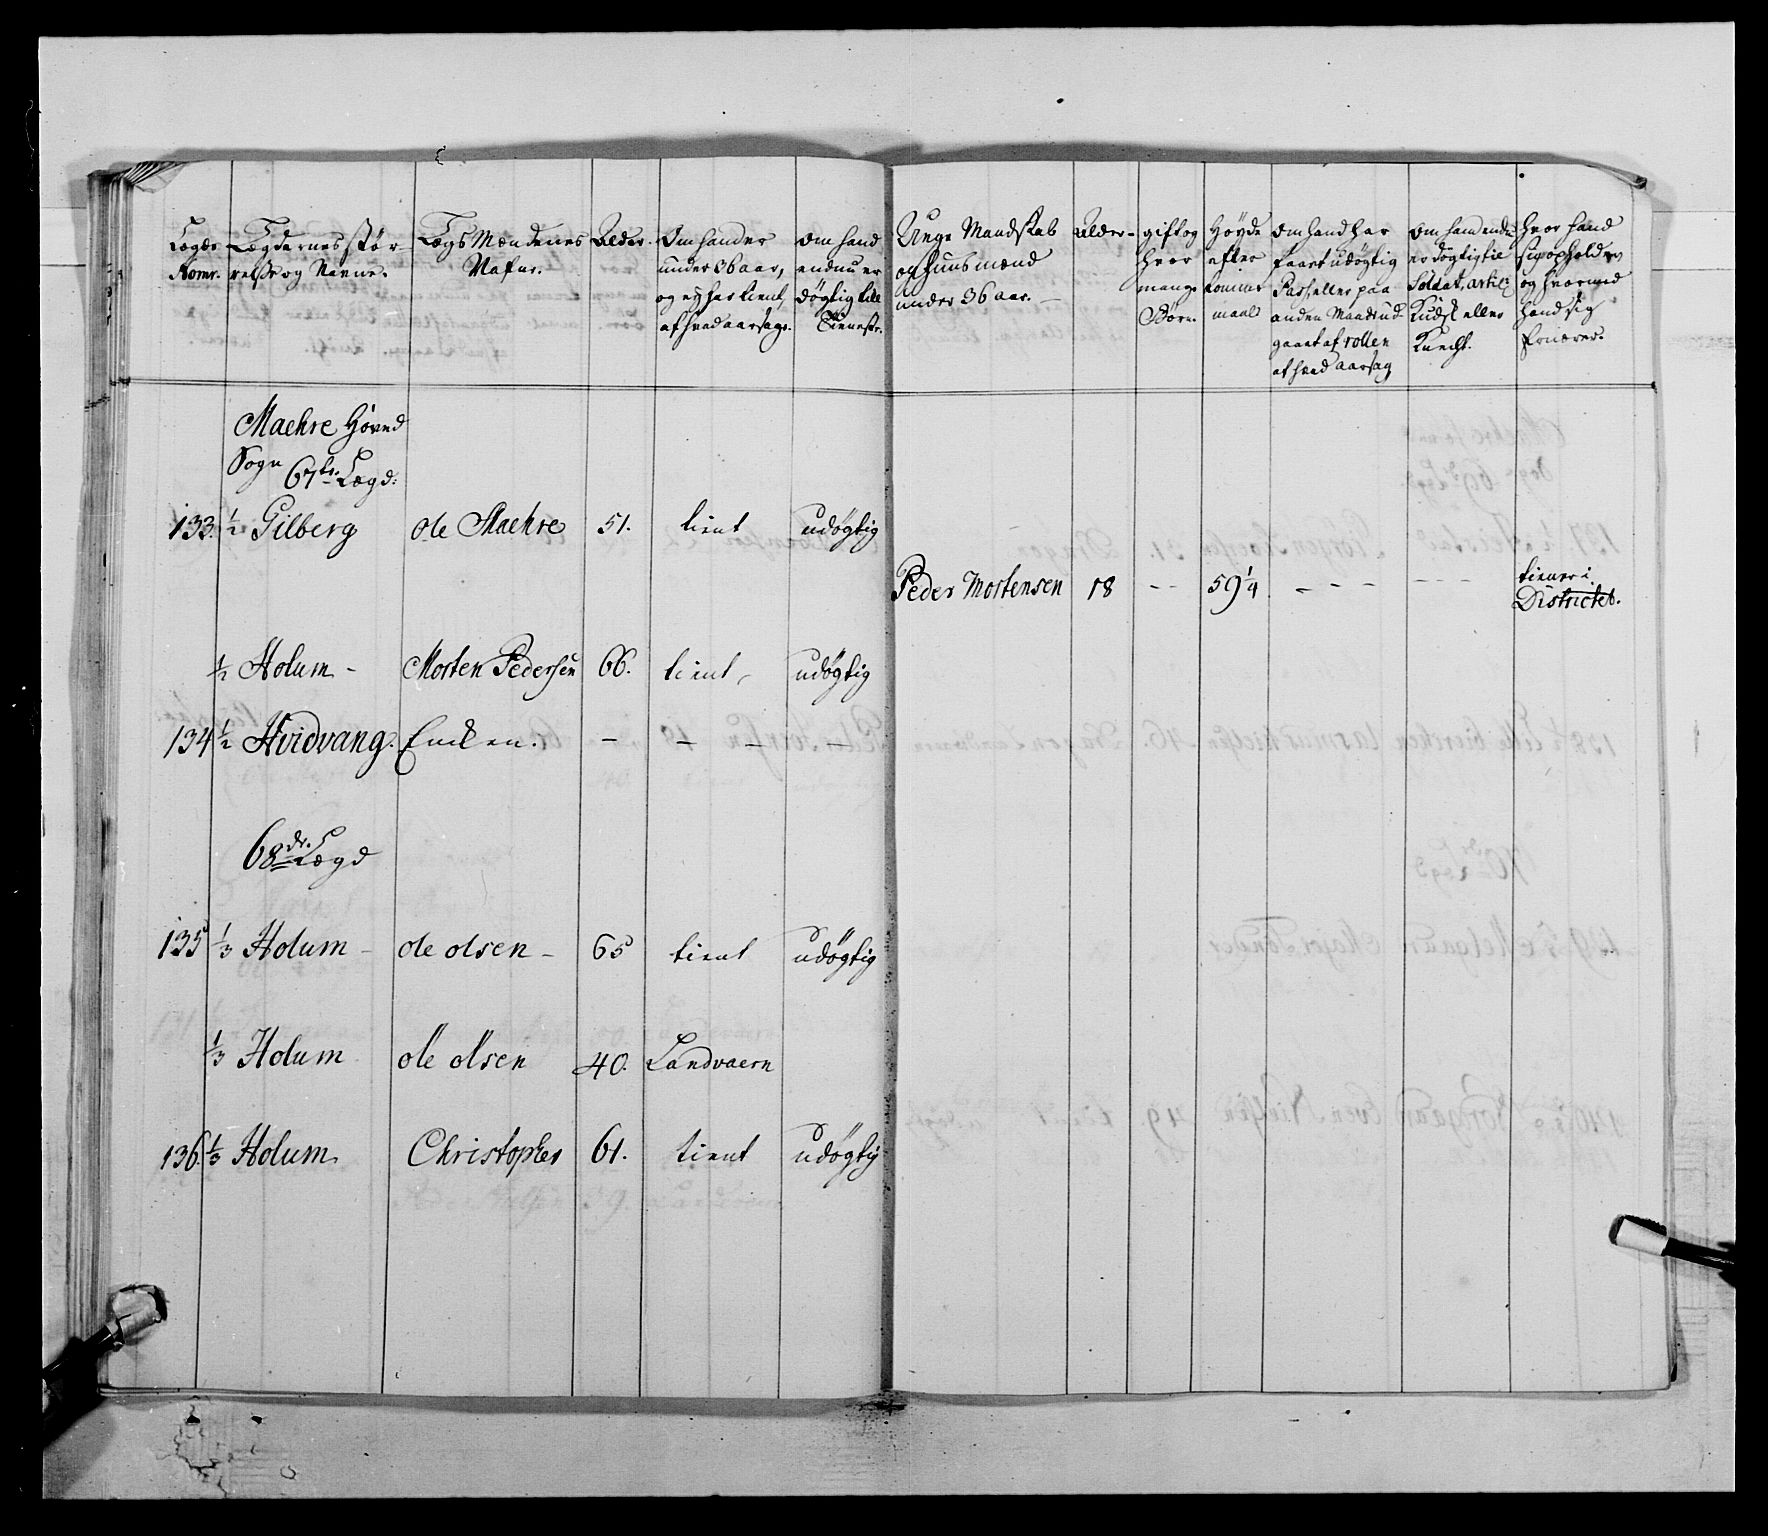 Lægds Nomr.
Lægdernes stør relse og Navne.
Lægs Mændenes Nafne.
Alder.
Om hand er under 36 aar, og ey har tient, af hvad aarsag.
Om hand endnu er døgtig till Tieneste.
Unge Mandskab og Huusmænd under 36 aar. —
Alder -
gift og hvor mange Børn.
Høyde efter Tomme maal
Om hand har faaet udøgtig Pass, eller paa anden Maade ud gaaet af rollen af hvad aarsag
Om hand endnu er døgtig til Soldat, artil: Kudsk eller Knecht.
Hvor hand sig opholder og hvormed hand sig ernærer.
Maehre Hoved
Sogn 67de Lægd:
133. ½ Gilberg ole Maehre 51. tient udøgtig
Peder Mortensen 18 - - 59 ¼ - - - - - - tiener i Districtet.
½ Holum - Morten Pedersen 66. tient, udøgtig
134 ½ Hvidvang. Encken. - - - -
68de Lægd
135 ⅓ Holum - ole olsen - 65 tient udøgtig
⅓ Holum ole olsen 40. Landvaern
136. ⅓ Holum Christopher 61. tient udøgtig